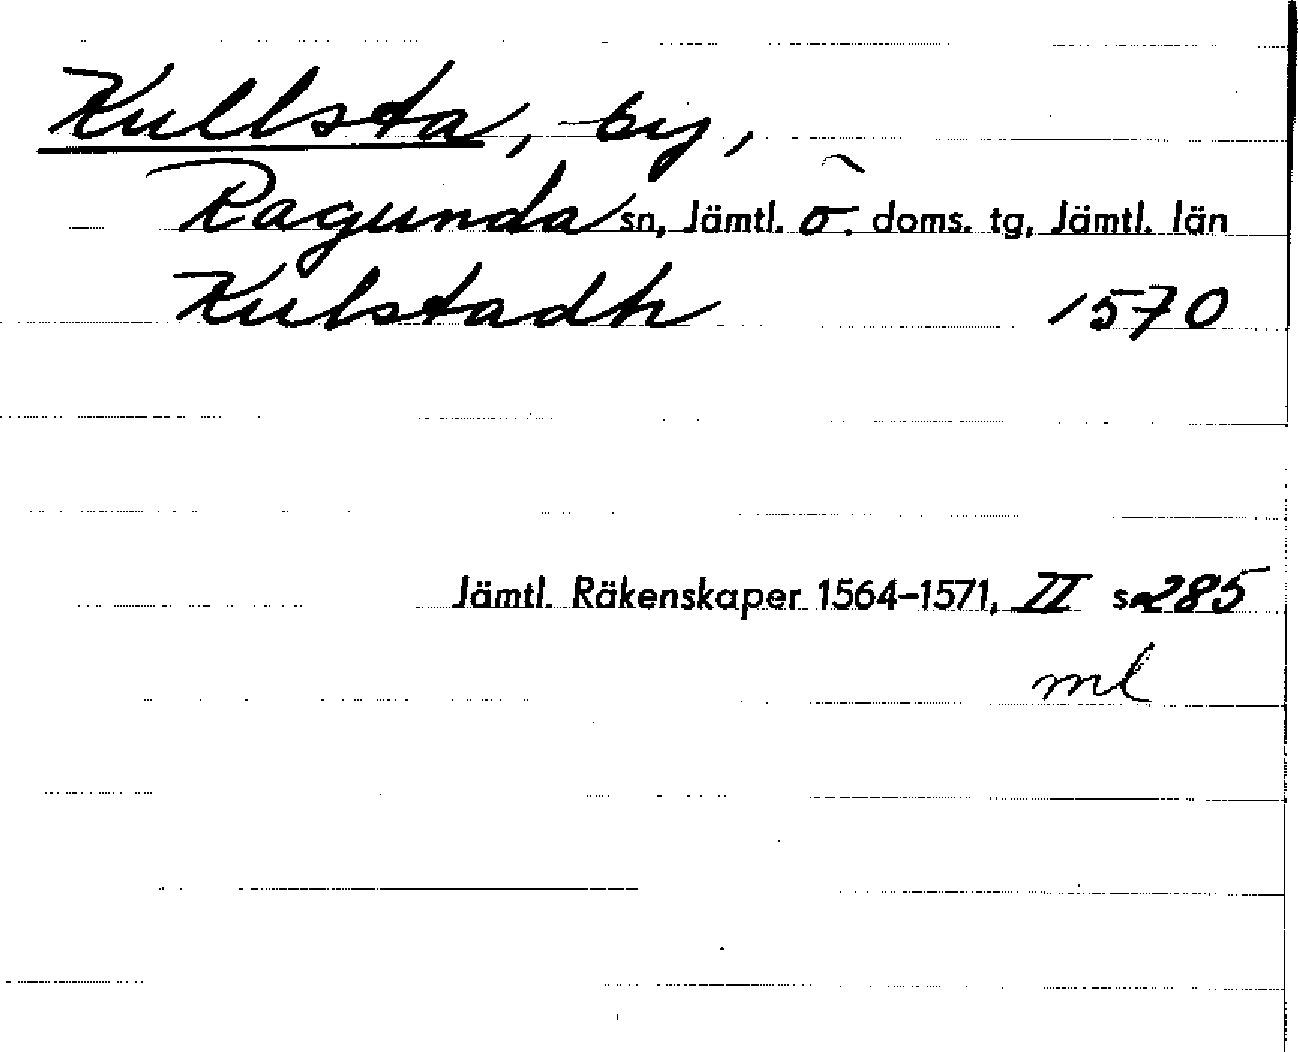 Kullsta, by,
Ragunda sn, Jämtl. ö. doms. tg, Jämtl. län
Kulstadh 1570
Jämtl. Räkenskaper 1564-1571, II s. 285
ml